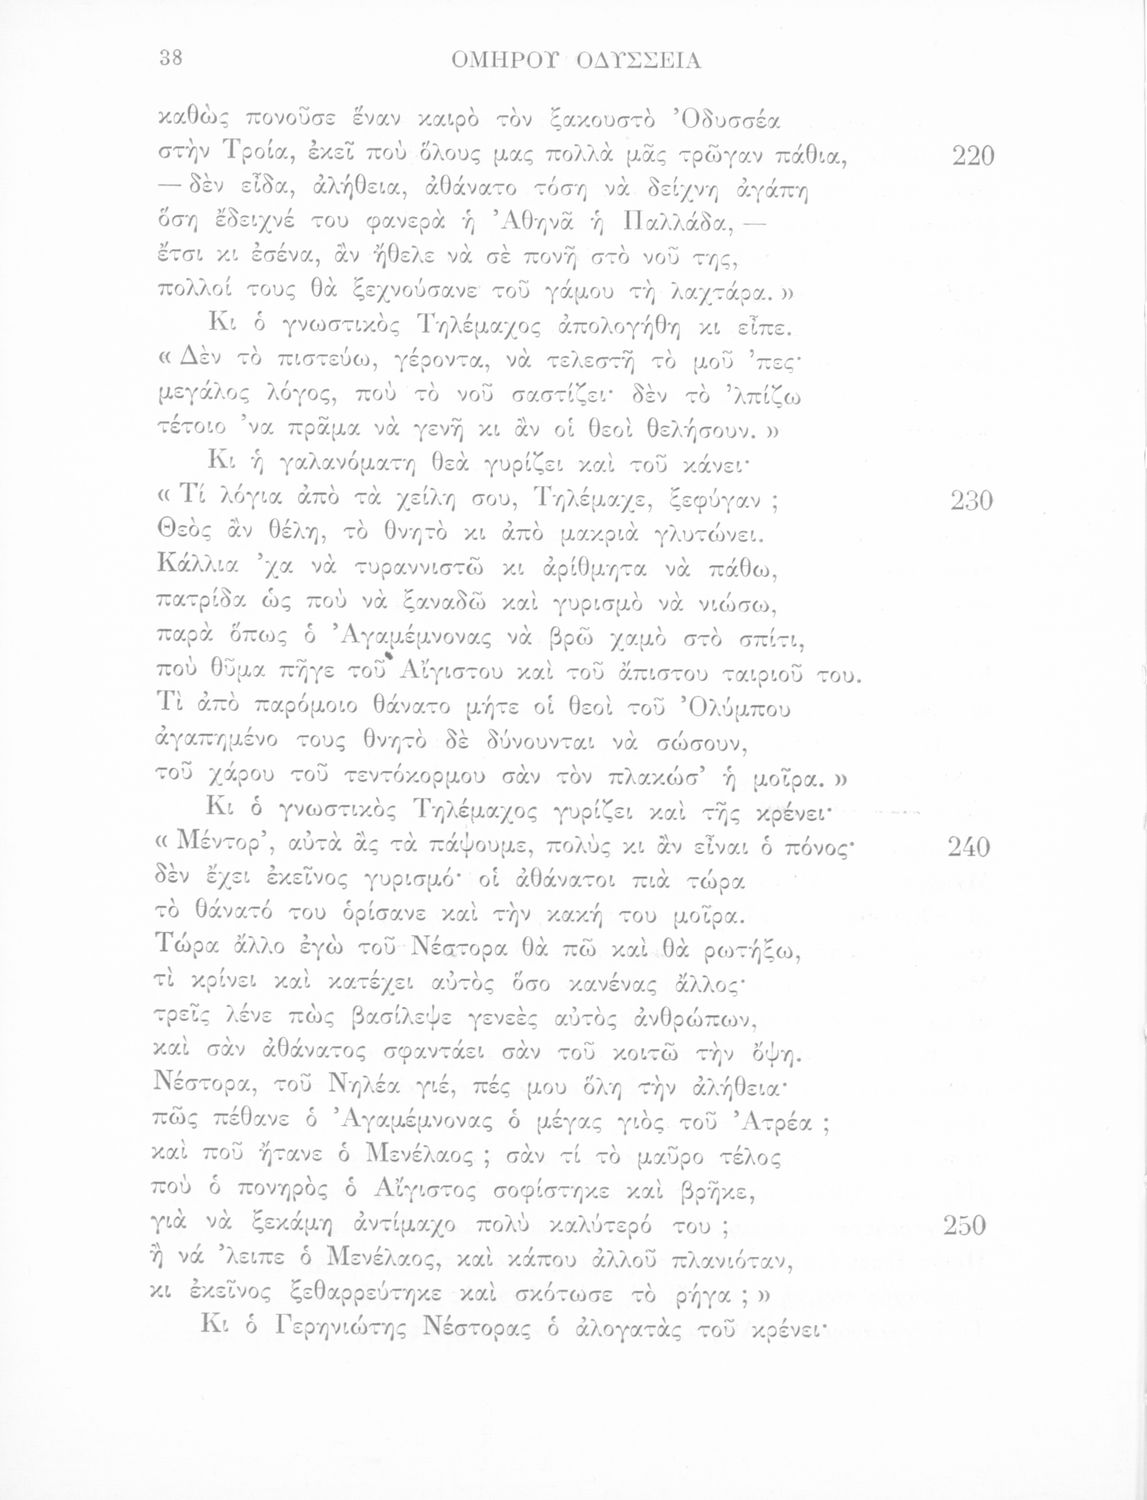 38 ΟΜΗΡΟΥ ΟΔΥΣΣΕΙΑ
καθὼς πονοῦσε ἕναν καιρὸ τὸν ξακουστὸ Ὀδυσσέα
στὴν Τροία, ἐκεῖ ποὺ ὅλους μας πολλὰ μᾶς τρῶγαν πάθια, 220
— δὲν εἶδα, ἀλήθεια, ἀθάνατο τόση νὰ δείχνη ἀγάπη
ὅση ἔδειχνέ του φανερὰ ἡ Ἀθηνᾶ ἡ Παλλάδα, —
ἔτσι κι ἐσένα, ἂν ἤθελε νὰ σὲ πονῆ στὸ νοῦ της,
πολλοί τους θὰ ξεχνούσανε τοῦ γάμου τὴ λαχτάρα. »
Κι ὁ γνωστικὸς Τηλέμαχος ἀπολογήθη κι εἶπε.
« Δὲν τὸ πιστεύω, γέροντα, νὰ τελεστῆ τὸ μοῦ ’πες·
μεγάλος λόγος, ποὺ τὸ νοῦ σαστίζει· δὲν τὸ ’λπίζω
τέτοιο ’να πρᾶμα νὰ γενῆ κι ἂν οἱ θεοὶ θελήσουν. »
Κι ἡ γαλανόματη θεὰ γυρίζει καὶ τοῦ κάνει·
« Τί λόγια ἀπὸ τὰ χείλη σου, Τηλέμαχε, ξεφύγαν ; 230
Θεὸς ἂν θέλη, τὸ θνητὸ κι ἀπὸ μακριὰ γλυτώνει.
Κάλλια ’χα νὰ τυραννιστῶ κι ἀρίθμητα νὰ πάθω,
πατρίδα ὡς ποὺ νὰ ξαναδῶ καὶ γυρισμὸ νὰ νιώσω,
παρὰ ὅπως ὁ Ἀγαμέμνονας νὰ βρῶ χαμὸ στὸ σπίτι,
ποὺ θῦμα πῆγε τοῦ Αἴγιστου καὶ τοῦ ἄπιστου ταιριοῦ του.
Τὶ ἀπὸ παρόμοιο θάνατο μήτε οἱ θεοὶ τοῦ Ὀλύμπου
ἀγαπημένο τους θνητὸ δὲ δύνουνται νὰ σώσουν,
τοῦ χάρου τοῦ τεντόκορμου σὰν τὸν πλακώσ’ ἡ μοῖρα. »
Κι ὁ γνωστικὸς Τηλέμαχος γυρίζει καὶ τῆς κρένει·
« Μέντορ’, αὐτὰ ἂς τὰ πάψουμε, πολὺς κι ἂν εἶναι ὁ πόνος· 240
δὲν ἔχει ἐκεῖνος γυρισμό· οἱ ἀθάνατοι πιὰ τώρα
τὸ θάνατό του ὁρίσανε καὶ τὴν κακή του μοῖρα.
Τώρα ἄλλο ἐγὼ τοῦ Νέστορα θὰ πῶ καὶ θὰ ρωτήξω,
τὶ κρίνει καὶ κατέχει αὐτὸς ὅσο κανένας ἄλλος·
τρεῖς λένε πὼς βασίλεψε γενεὲς αὐτὸς ἀνθρώπων,
καὶ σὰν ἀθάνατος σφαντάει σὰν τοῦ κοιτῶ τὴν ὄψη.
Νέστορα, τοῦ Νηλέα γιέ, πές μου ὅλη τὴν ἀλήθεια·
πῶς πέθανε ὁ Ἀγαμέμνονας ὁ μέγας γιὸς τοῦ Ἀτρέα ;
καὶ ποῦ ἤτανε ὁ Μενέλαος ; σὰν τί τὸ μαῦρο τέλος
ποὺ ὁ πονηρὸς ὁ Αἴγιστος σοφίστηκε καὶ βρῆκε,
γιὰ νὰ ξεκάμη ἀντίμαχο πολὺ καλύτερό του ; 250
ἢ νά ’λειπε ὁ Μενέλαος, καὶ κάπου ἀλλοῦ πλανιόταν,
κι ἐκεῖνος ξεθαρρεύτηκε καὶ σκότωσε τὸ ρήγα ; »
Κι ὁ Γερηνιώτης Νέστορας ὁ ἀλογατὰς τοῦ κρένει·